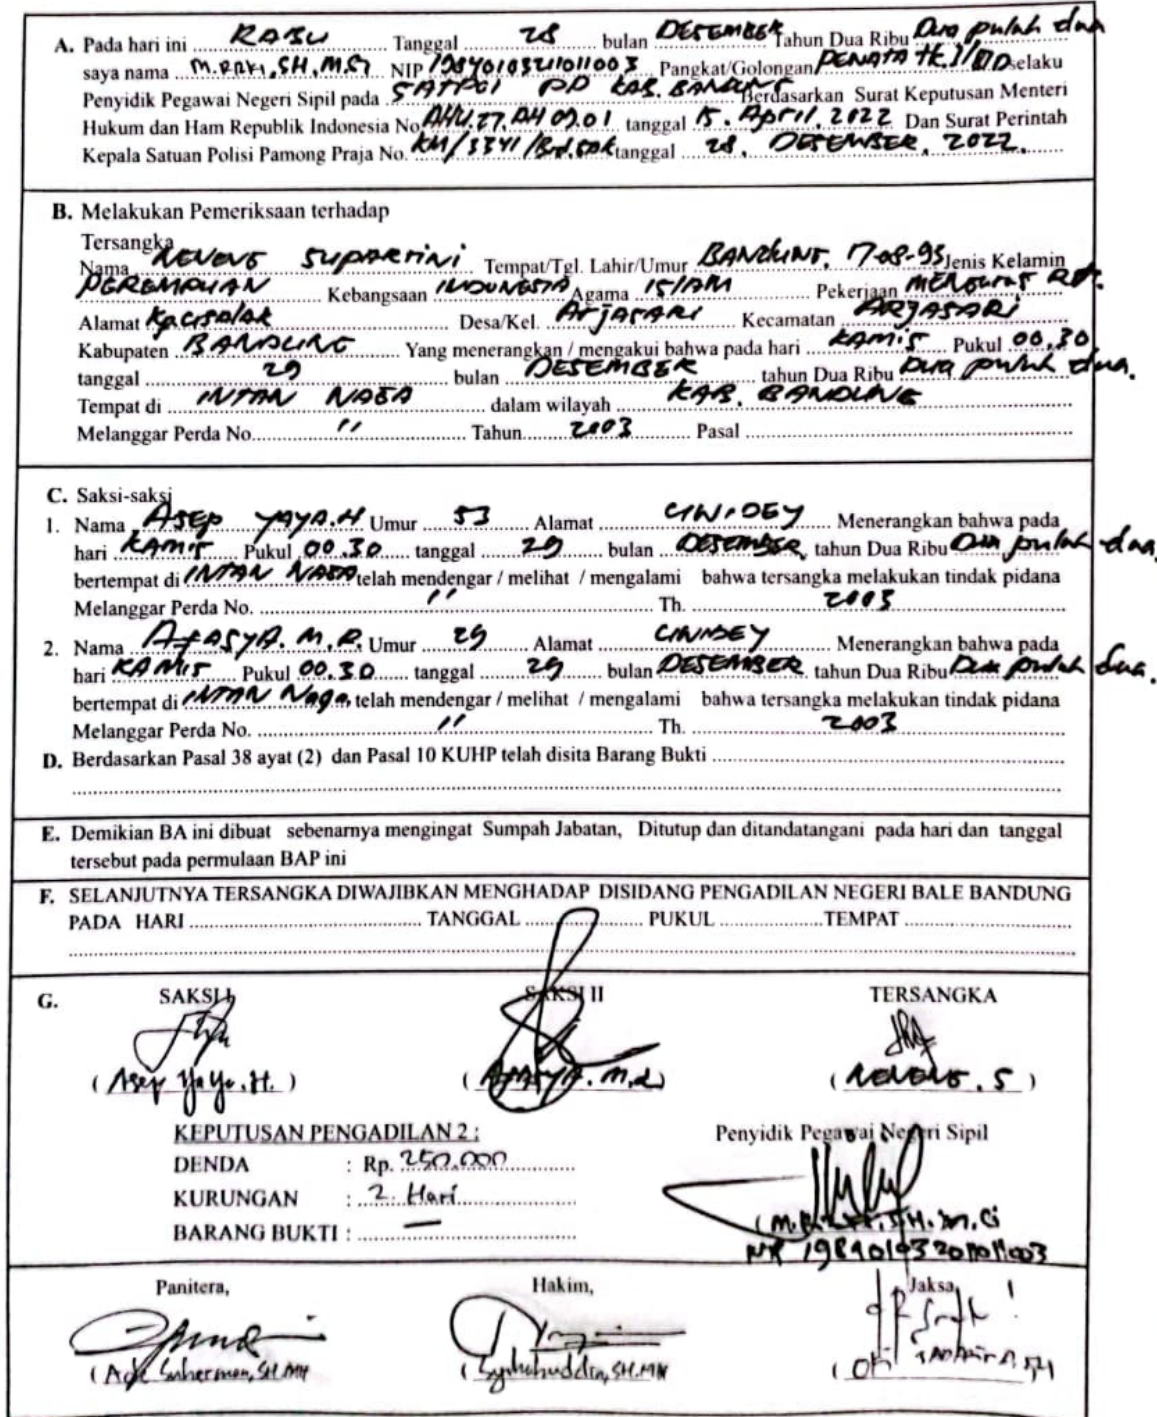 A. Pada hari ini RABU Tanggal 28 bulan DESEMBER Tahun Dua Ribu Dua puluh dua
saya nama M. RIZKI, SH, M.Si NIP Pangkat/Golongan PENATA TK.I/III D selaku
Penyidik Pegawai Negeri Sipil pada SATPOL PP KAB. BANDUNG Berdasarkan Surat Keputusan Menteri
Hukum dan Ham Republik Indonesia No. AHU.27.AH 09.01 tanggal 15. April. 2022 Dan Surat Perintah
Kepala Satuan Polisi Pamong Praja No. tanggal 28. DESEMBER. 2022.
B. Melakukan Pemeriksaan terhadap
Tersangka
Nama NENENG SUPARTINI Tempat/Tgl. Lahir/Umur BANDUNG, 17-08-93 Jenis Kelamin
PEREMPUAN Kebangsaan INDONESIA Agama ISLAM Pekerjaan MENGURUS RDT.
Alamat Kp. Cisalak Desa/Kel. Arjasari Kecamatan ARJASARI
Kabupaten BANDUNG Yang menerangkan / mengakui bahwa pada hari KAMIS Pukul 00.30
tanggal 29 bulan DESEMBER tahun Dua Ribu Dua puluh dua.
Tempat di INTAN NAGA dalam wilayah KAB. BANDUNG
Melanggar Perda No. 11 Tahun 2003 Pasal
C. Saksi-saksi
1. Nama ASEP YAYA.H Umur 53 Alamat CIWIDEY Menerangkan bahwa pada
hari KAMIS Pukul 00.30 tanggal 29 bulan DESEMBER tahun Dua Ribu Dua puluh dua
bertempat di INTAN NAGA telah mendengar / melihat / mengalami bahwa tersangka melakukan tindak pidana
Melanggar Perda No. 11 Th. 2003
2. Nama M.R. Umur 29 Alamat CIWIDEY Menerangkan bahwa pada
hari KAMIS Pukul 00.30 tanggal 29 bulan DESEMBER tahun Dua Ribu Dua puluh dua.
bertempat di INTAN Naga telah mendengar / melihat / mengalami bahwa tersangka melakukan tindak pidana
Melanggar Perda No. 11 Th. 2003
D. Berdasarkan Pasal 38 ayat (2) dan Pasal 10 KUHP telah disita Barang Bukti
E. Demikian BA ini dibuat sebenarnya mengingat Sumpah Jabatan, Ditutup dan ditandatangani pada hari dan tanggal
tersebut pada permulaan BAP ini
F. SELANJUTNYA TERSANGKA DIWAJIBKAN MENGHADAP DISIDANG PENGADILAN NEGERI BALE BANDUNG
PADA HARI TANGGAL PUKUL TEMPAT
G. SAKSI I SAKSI II TERSANGKA
(Asep Yaya.H.) (M.R) (NENENG.S)
KEPUTUSAN PENGADILAN 2 : Penyidik Pegawai Negeri Sipil
DENDA : Rp. 250.000
KURUNGAN : 2. Hari
BARANG BUKTI : —
(M. RIZKI, SH. M.Si
NIP
Panitera, Hakim, Jaksa,
(Ade Suherman, SH.MH (Syihabuddin, SH.MH